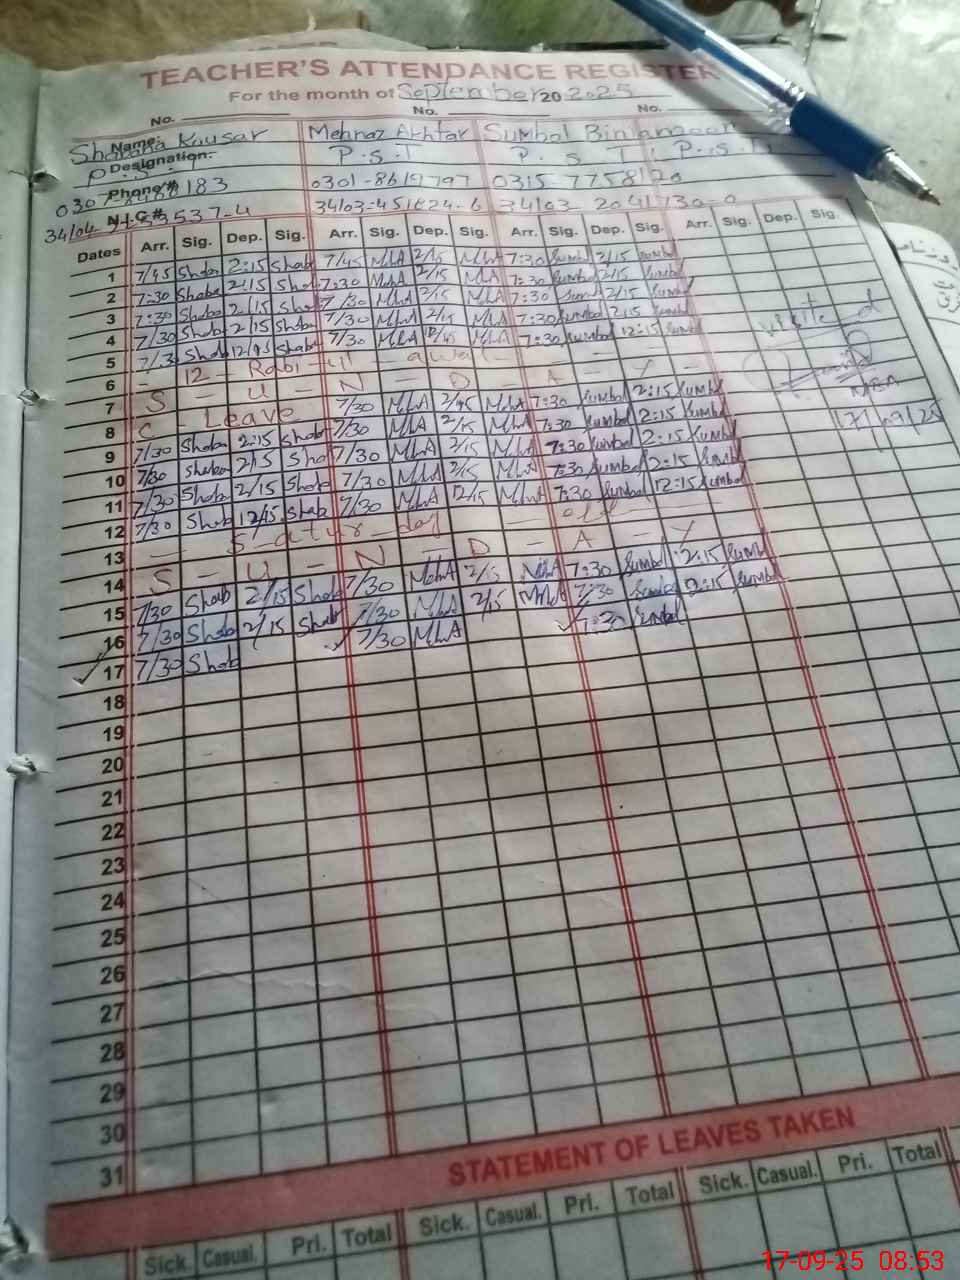 TEACHER'S ATTENDANCE REGISTER
For the month of September 20 2025
No. No. No.
Name: Shabana Kausar Mehnaz Akhtar Sumbal Bint
Designation: P.S.T P.S.T P.S.T
Phone # 0301-8619797 0315-7758120
N.I.C #
Dates Arr. Sig. Dep. Sig. Arr. Sig. Dep. Sig. Arr. Sig. Dep. Sig. Arr. Sig. Dep. Sig.
1 7/45 Shaba 2:15 Shaba 7/45 MhA 2/15 MhA 7:30 Sumbal 2/15 Sumbal
2 7:30 Shaba 2/15 Sha 7:30 MhA 2/15 MhA 7:30 Sumbal 2/15 Sumbal
3 7:30 Shaba 2/15 Sha 7/30 MhA 2/15 MhA 7:30 Sumbal 2/15 Sumbal
4 7/30 Shab 2/15 Shaba 7/30 MhA 2/15 MhA 7:30 Sumbal 2:15 Sumbal
5 7/3 Shab Shab 7/30 MhA MhA 7:30 Sumbal 12:15 Sumbal
6 - 12 - Rabi-ul-awal -
7 S - U - N - D - A - Y -
8 C - Leave 7/30 MhA MhA 7:30 Sumbal 2:15 Sumbal
9 7/30 Shaba 2:15 Shab 7/30 MhA 2/15 MhA 7:30 Sumbal 2:15 Sumbal
10 7/30 Shaba 2/15 Sha 7/30 MhA 2/15 MhA 7:30 Sumbal 2:15 Sumbal
11 7/30 Shab 2/15 Shab 7/30 MhA 2/15 MhA 7:30 Sumbal 2:15 Sumbal
12 7/30 Shab 12/15 Shab 7/30 MhA 12/15 MhA 7:30 Sumbal 12:15 Sumbal
13 - Saturday - off
14 S - U - N - D - A - Y
15 7/30 Shab 2/15 Shab 7/30 MehA 2/15 MhA 7:30 Sumbal 2:15 Sumbal
16 7/30 Shab 2/15 Shab 7/30 MhA 2/15 MhA 7/30 Sumbal 2:15 Sumbal
17 7/30 Shab 7/30 MhA 7:30 Sumbal
visited
MEA
17/09/25
18
19
20
21
22
23
24
25
26
27
28
29
30
31
STATEMENT OF LEAVES TAKEN
Sick. Casual. Pri. Total Sick. Casual. Pri. Total Sick. Casual. Pri. Total
17-09-25 08:53